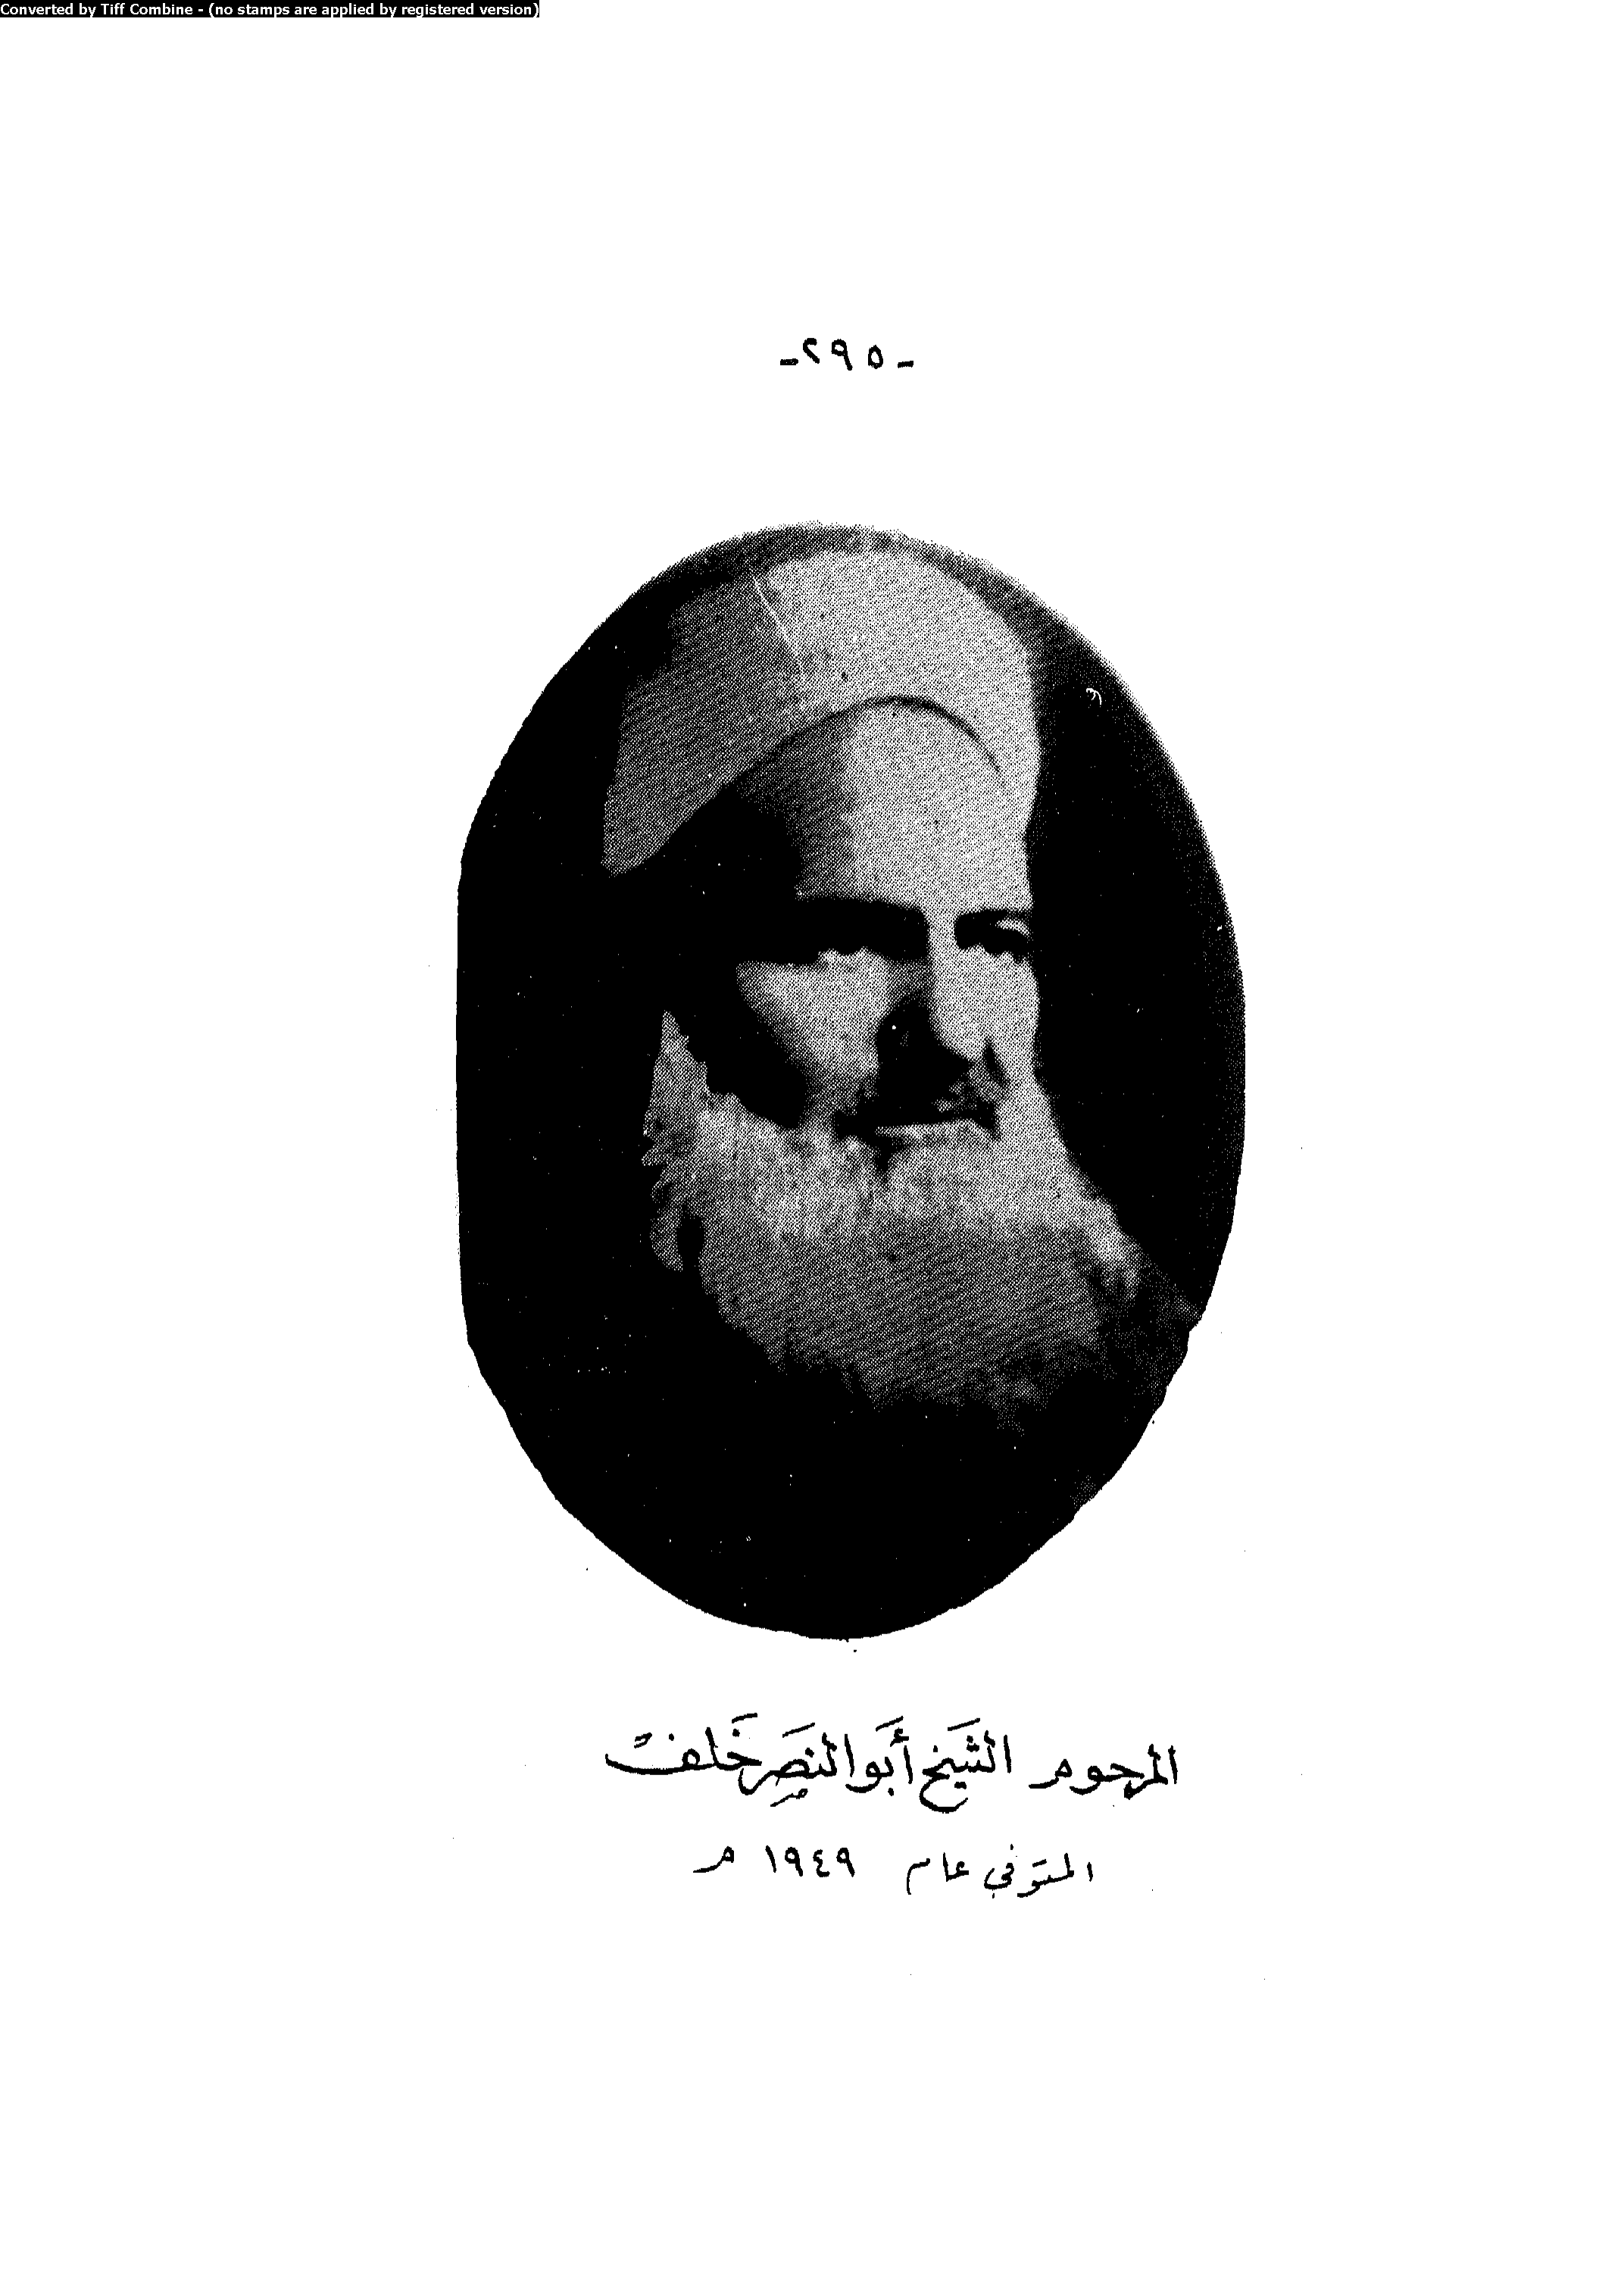 Converted by Tiff Combine - (no stamps are applied by registered version)
-٢٩٥-
المرحوم الشَيخ أَبو النصَر خَلف
المتوَفي عام ١٩٤٩ م